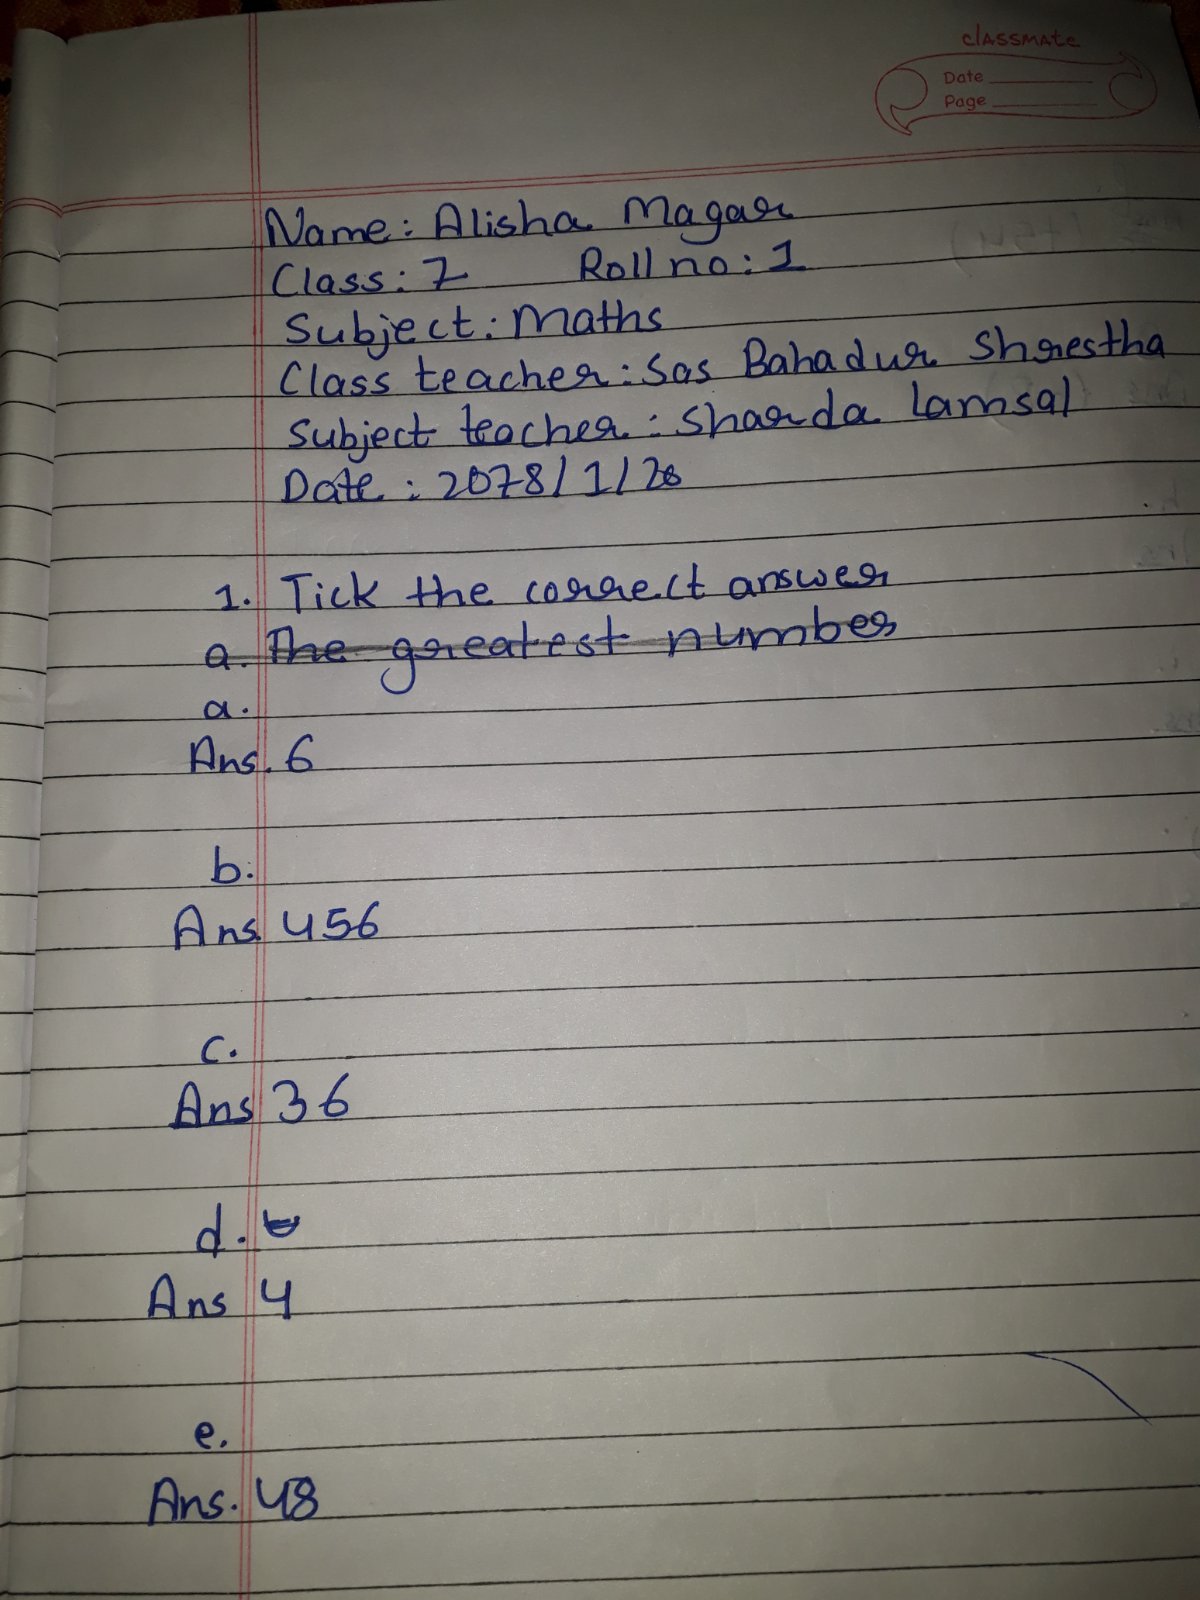 classmate
Date
Page
Name: Alisha Magar
Class: 7 Roll no: 1
Subject: Maths
Class teacher: Sas Bahadur Shrestha
Subject teacher: Sharda Lamsal
Date: 2078/1/28
1. Tick the correct answer
a. The greatest number
a.
Ans. 6
b.
Ans. 456
c.
Ans 36
d.
Ans 4
e.
Ans. 48